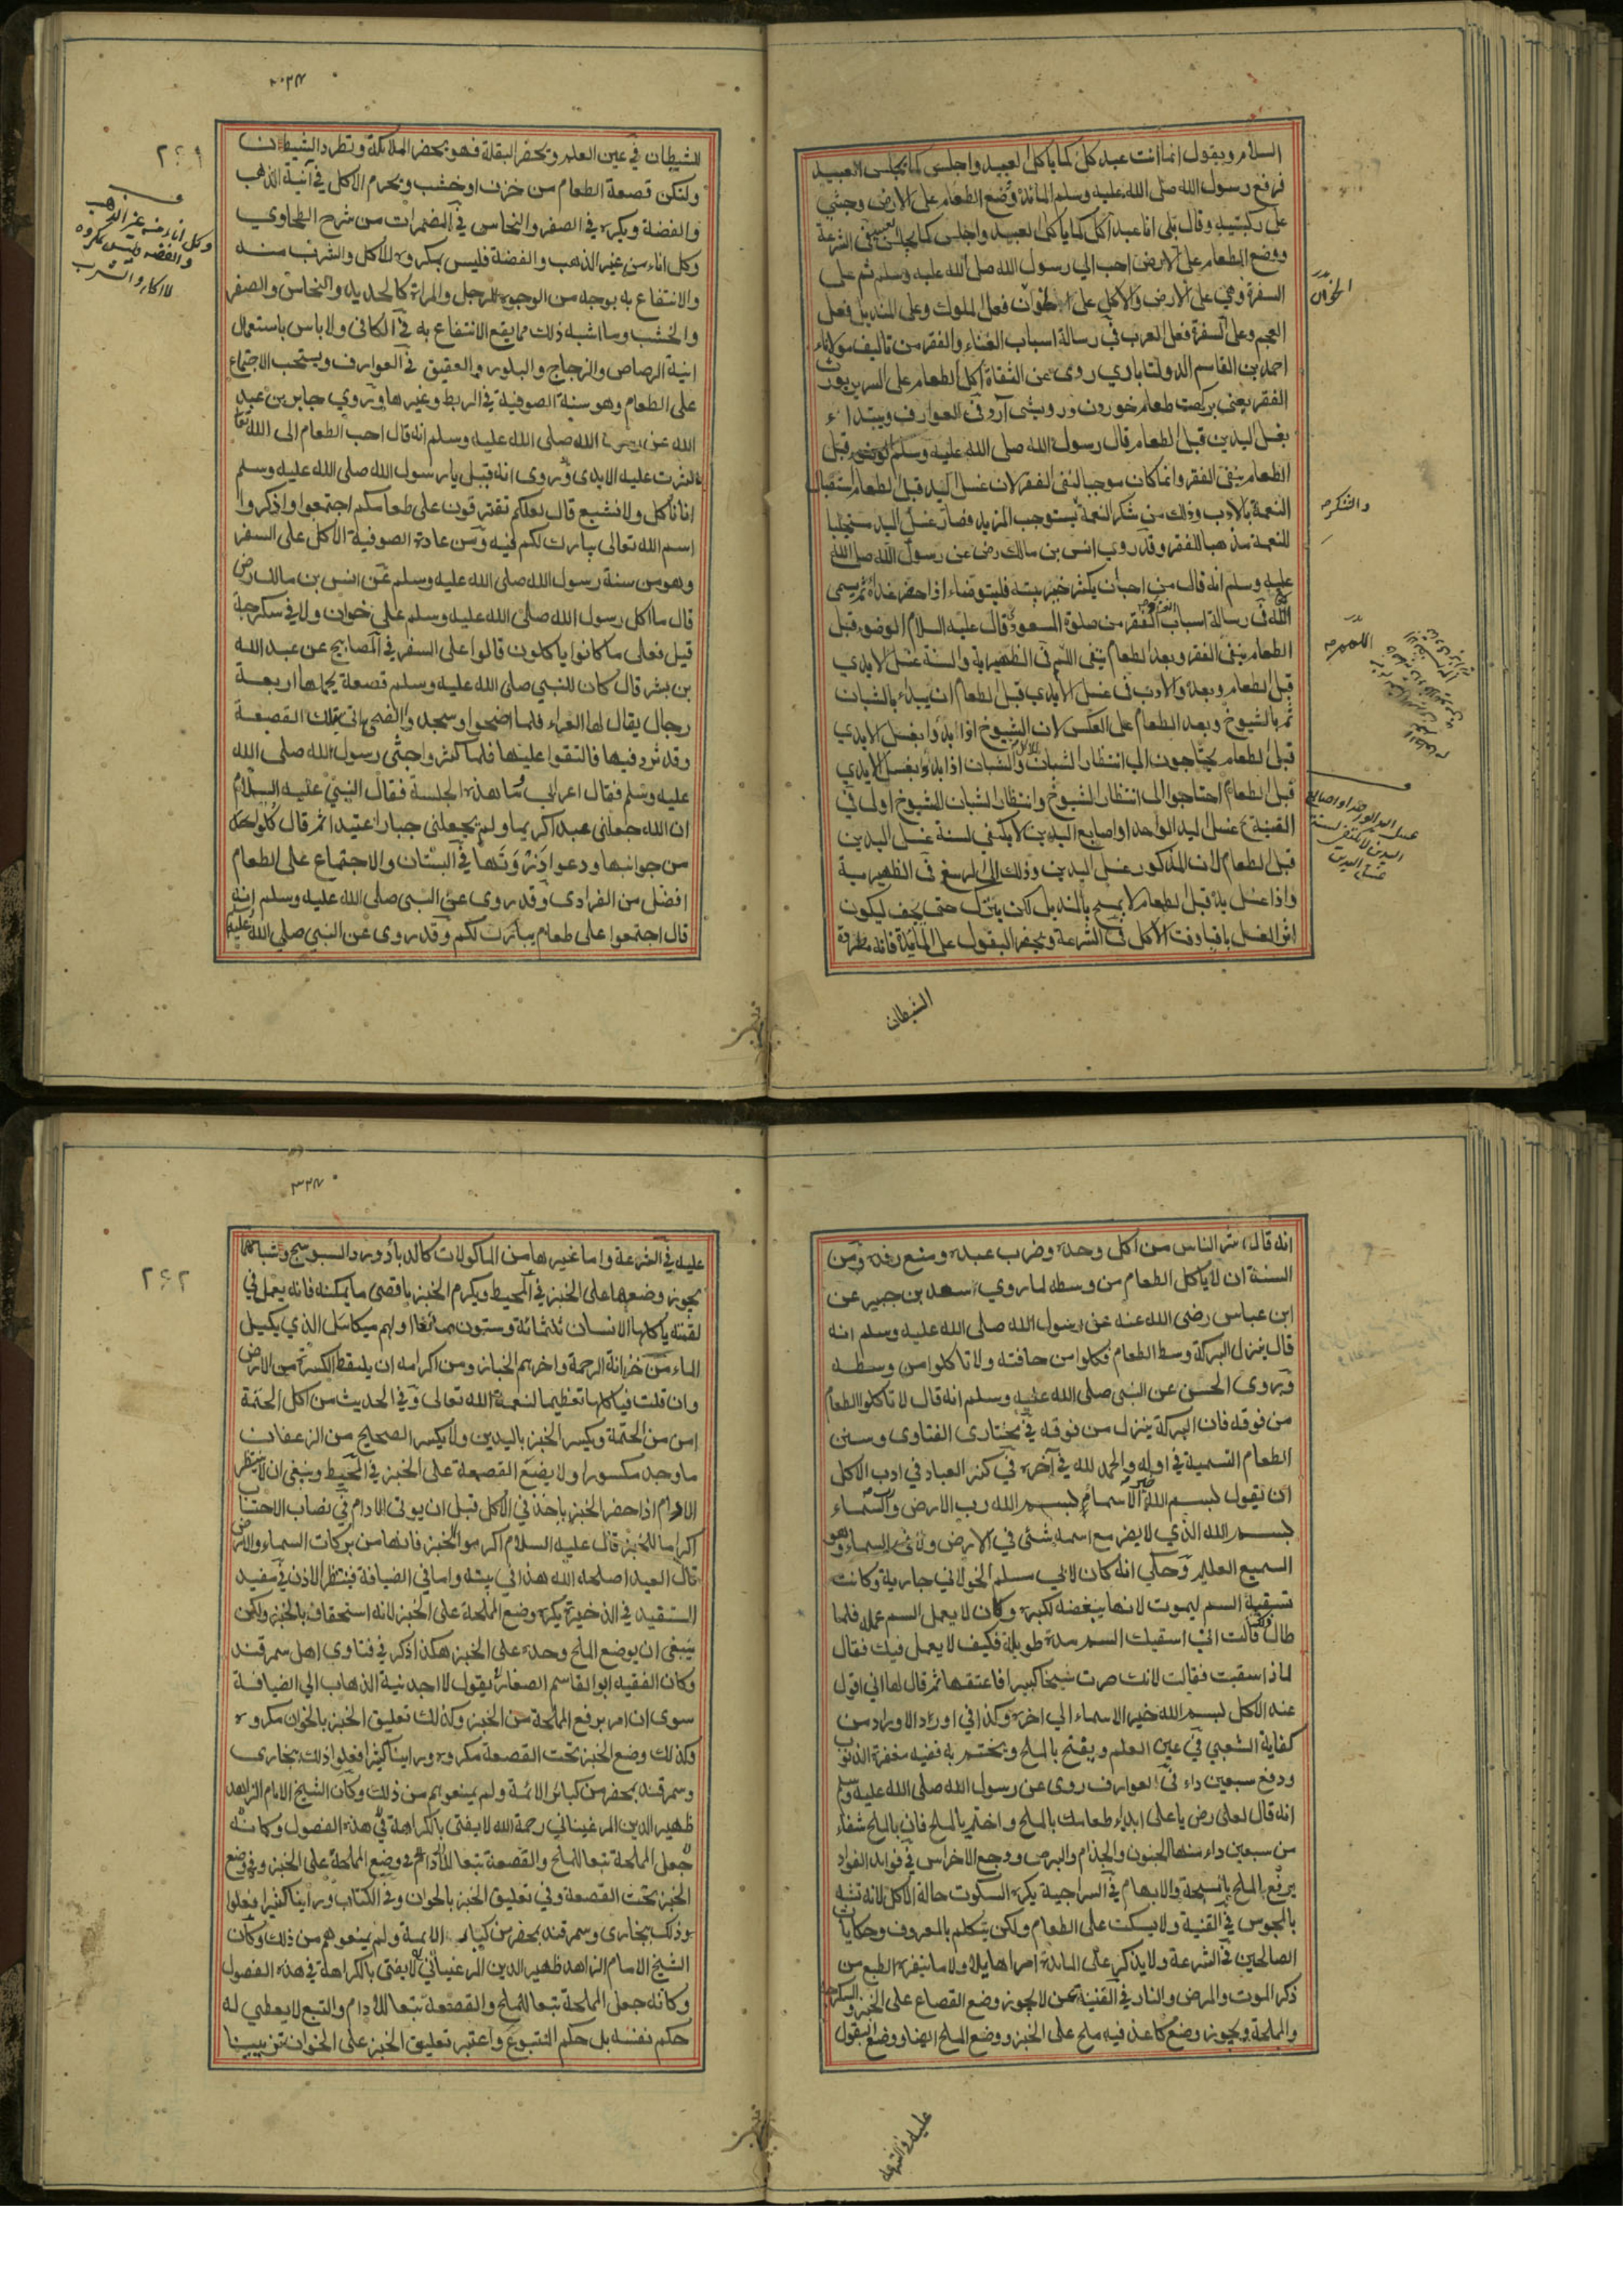 السلام ويقول انما انت عبد كل كما يأكل العبيد واجلس كما يجلس العبيد
فرفع رسول الله صلى الله عليه وسلم المائدة وضع الطعام على الارض وجثى
على ركبتيه وقال بلى انا عبد آكل كما يأكل العبيد واجلس كما يجلس العبيد في الشرعة
ووضع الطعام على الارض احب الى رسول الله صلى الله عليه وسلم ثم على
السفرة وهي على الارض والاكل على الخوان فعل الملوك وعلى المنديل فعل
العجم وعلى السفرة فعل العرب في رسالة اسباب الغناء والفقر من تاليف مولانا
احمد بن القاسم الدولتاباري روى عن الثقاة اكل الطعام على السرير يورث
الفقر يعني بركت طعام خوردن درويشى آرد في العوارف ويبتداء
بغسل اليدين قبل الطعام قال رسول الله صلى الله عليه وسلم الوضوء قبل
الطعام ينفى الفقر وانما كان موجبا لنفى الفقر لان غسل اليد قبل الطعام استقبال
النعمة بالادب وذلك من شكر النعمة يستوجب المزيد فصار غسل اليد مستجلبا
للنعمة مذهبا للفقر وقد روى انس بن مالك رض عن رسول الله صلى الله
عليه وسلم انه قال من احب ان يكثر خير بيته فليتوضاء اذا حضر غداه ثم يسمى
الله في رسالة اسباب الفقر من صلوة المسعودي قال عليه السلام الوضوء قبل
الطعام ينفى الفقر وبعد الطعام ينفى اللمم في الظهيرية والسنة غسل الايدي
قبل الطعام وبعده والادب في غسل الايدي قبل الطعام ان يبداء بالشبان
ثم بالشيوخ وبعد الطعام على العكس لان الشيوخ اذا ابدؤا بغسل الايدي
قبل الطعام يحتاجون الى انتظار الشبان والشبان اذا بدؤا بغسل الايدي
قبل الطعام احتاجوا الى انتظار الشيوخ وانتظار الشبان للشيوخ اولى في
القنية غسل اليد الواحد او اصابع اليدين لا يكفى لسنة غسل اليدين
قبل الطعام لان المذكور غسل اليدين وذلك الى الرسغ في الظهيرية
واذا غسل يده قبل الطعام لا يمسح بالمنديل لكن يترك حتى يجف ليكون
اثر الغسل باقيا وقت الاكل في الشرعة ويحضر البقول على المائدة فانه مطردة
الخوان
والشكر
اللمم
غسل اليد الواحد او اصابع
اليدين لا يكفى لسنة
غسل اليدين
الشيطان
٢٦١
للشيطان في عين العلم ويحضر البقلة فهو يحضر الملائكة وتطرد الشيطان
ولتكن قصعة الطعام من خزف او خشب ويحرم الاكل في آنية الذهب
والفضة ويكره في الصفر والنحاس في المضمرات من شرح الطحاوي
وكل اناء من غير الذهب والفضة فليس بمكروه للاكل والشرب منه
والانتفاع به بوجه من الوجوه للرجل والمراة كالحديد والنحاس والصفر
والخشب وما اشبه ذلك مما يقع الانتفاع به في الكافى ولا باس باستعمال
انية الرصاص والزجاج والبلور والعقيق في العوارف ويستحب الاجتماع
على الطعام وهو سنة الصوفية في الربط وغيرها وروي جابر بن عبد
الله عن رسول الله صلى الله عليه وسلم انه قال احب الطعام الى الله تعا
ما كثرت عليه الايدى وروى انه قيل يارسول الله صلى الله عليه وسلم
انا ناكل ولا نشبع قال لعلكم تفترقون على طعامكم اجتمعوا واذكروا
اسم الله تعالى يبارك لكم فيه ومن عادة الصوفية الاكل على السفر
وهو من سنة رسول الله صلى الله عليه وسلم عن انس بن مالك رض
قال ما اكل رسول الله صلى الله عليه وسلم على خوان ولا في سكرجة
قيل فعلى ما كانوا ياكلون قالوا على السفر في المصابيح عن عبد الله
بن بشر قال كان للنبي صلى الله عليه وسلم قصعة يحملها اربعة
رجال يقال لها الغراء فلما اضحوا وسجد والضحى اتى بتلك القصعة
وقد ثرد فيها فالتقوا عليها فلما كثروا جثى رسول الله صلى الله
عليه وسلم فقال اعرابي ما هذه الجلسة فقال النبي عليه السلام
ان الله جعلنى عبدا كريما ولم يجعلنى جبارا عنيدا ثم قال كلوا
من جوانبها ودعوا ذروتها في البستان والاجتماع على الطعام
افضل من الفرادى وقد روى عن النبى صلى الله عليه وسلم انه
قال اجتمعوا على طعام يبارك لكم وقد روى عن النبي صلي الله عليه
وكل اناء من غير الذهب
والفضة فليس بمكروه
للاكل والشرب
انه قال شر الناس من اكل وحده وضرب عبده ومنع رفده ومن
السنة ان لا ياكل الطعام من وسطه لما روي سعد بن جبير عن
ابن عباس رضى الله عنه عن رسول الله صلى الله عليه وسلم انه
قال ينزل البركة وسط الطعام فكلوا من حافته ولا تاكلوا من وسطه
وروى الحسن عن النبى صلى الله عليه وسلم انه قال لا تاكلوا الطعام
من فوقه فان البركة ينزل من فوقه في مختارى الفتاوى وسنن
الطعام التسمية في اوله والحمد لله في آخره في كنز العباد في ادب الاكل
ان تقول بسم الله خير الاسماء بسم الله رب الارض والسماء
بسم الله الذي لا يضر مع اسمه شئ في الارض ولا في السماء وهو
السميع العليم وحكي انه كان لابى مسلم الخولاني جارية وكانت
تسقيه السم ليموت لانها يبغضه لكبره وكان لا يعمل السم عمله فلما
طال قالت انى اسقيك السم مدة طويلة فكيف لا يعمل فيك فقال
لماذا سقيت فقالت لانك صرت شيخا كبيرا فاعتقها ثم قال لها اني اقول
عند الاكل بسم الله خير الاسماء الى اخره وكذا في اوراد الاوراد من
كفاية الشعبي في عين العلم ويفتح بالملح ويختم به ففيه مغفرة الذنوب
ودفع سبعين داء في العوارف روى عن رسول الله صلى الله عليه وسلم
انه قال لعلى رض يا على ابداء طعامك بالملح واختم بالملح فان بالملح شفاء
من سبعين داء منها الجنون والجذام والبرص ووجع الاخراس في فوايد الفواد
يرفع الملح بالسبحة والابهام في السراجية يكره السكوت حالة الاكل لانه تشبه
بالمجوس في القنية ولا يسكت على الطعام ولكن يتكلم بالمعروف وحكايات
الصالحين في الشرعة ولا يذكر على المائدة امرا هايلا ولا ما ينفره الطبع من
ذكر الموت والمرض والنار في القنية لا يجوز وضع القصاع على الخبز والسكرجة
والمملحة ويجوز وضع كاغذ فيه ملح على الخبز ووضع الملح ايضا ووضع البقول
عليه في الشرعة
٢٦٢
عليه في الشرعة واما غيرها من الماكولات كالبادورد السبوسج وشباهها
يجوز وضعها على الخبز في المحيط ويكرم الخبز باقصى ما يمكنه فانه يعمل في
لقمة ياكلها الانسان ثلثمائة وستون صانعا اولهم ميكائل الذي يكيل
الماء من خزانة الرحمة واخرهم الخباز ومن اكرامه ان يلتقط الكسرة من الارض
وان قلت فياكلها تعظيما لنعمة الله تعالى وفي الحديث من اكل
ويكسر الخبز باليدين ولا يكسر الصحيح من الرغفان
ما وجد مكسورا ولا يضع القصعة على الخبز في المحيط وينبغى ان لا ينتظر
الادام اذا حضر الخبز ياخذ في الاكل قبل ان يوتى الادام في نصاب الاحتساب
اكراما للخبز قال عليه السلام اكرموا الخبز فانها من بركات السماء والارض
قال العبد اصلحه الله هذا في بيته واما في الضيافة فينتظر الاذن في مفيد
المستفيد في الذخيرة يكره وضع المملحة على الخبز لانه استحقاف بالخبز ولكن
ينبغى ان يوضع الملح وحده على الخبز هكذا ذكر في فتاوى اهل سمرقند
وكان الفقيه ابو القاسم الصفار يقول لا اجد نية الذهاب الي الضيافة
سوى ان امر برفع المملحة من الخبز وكذلك تعليق الخبز بالخوان مكروه
وكذلك وضع الخبز تحت القصعة مكروه وراينا كثيرا فعلوا ذلك ببخارى
وسمرقند بحضر من كبائر الائمة ولم يمنعوهم من ذلك وكان الشيخ الامام الزاهد
ظهير الدين المرغيناني رحمة الله لا يفتى بالكراهة في هذه الفصول وكانه
جعل المملحة تبعا للملح والقصعة تبعا للادام في وضع المملحة على الخبز وفي وضع
الخبز تحت القصعة وفي تعليق الخبز بالخوان وفي الكتاب وراينا كثيرا فعلوا
وذلك ببخارى وسمرقند بحضر من كبار الائمة ولم يمنعوهم من ذلك وكان
الشيخ الامام الزاهد ظهير الدين المرغيناني لا يفتى بالكراهة في هذه الفصول
وكانه جعل المملحة تبعا للملح والقصعة تبعا للادام والتبع لا يعطي له
حكم نفسه بل حكم المتبوع واعتبر تعليق الخبز على الخوان